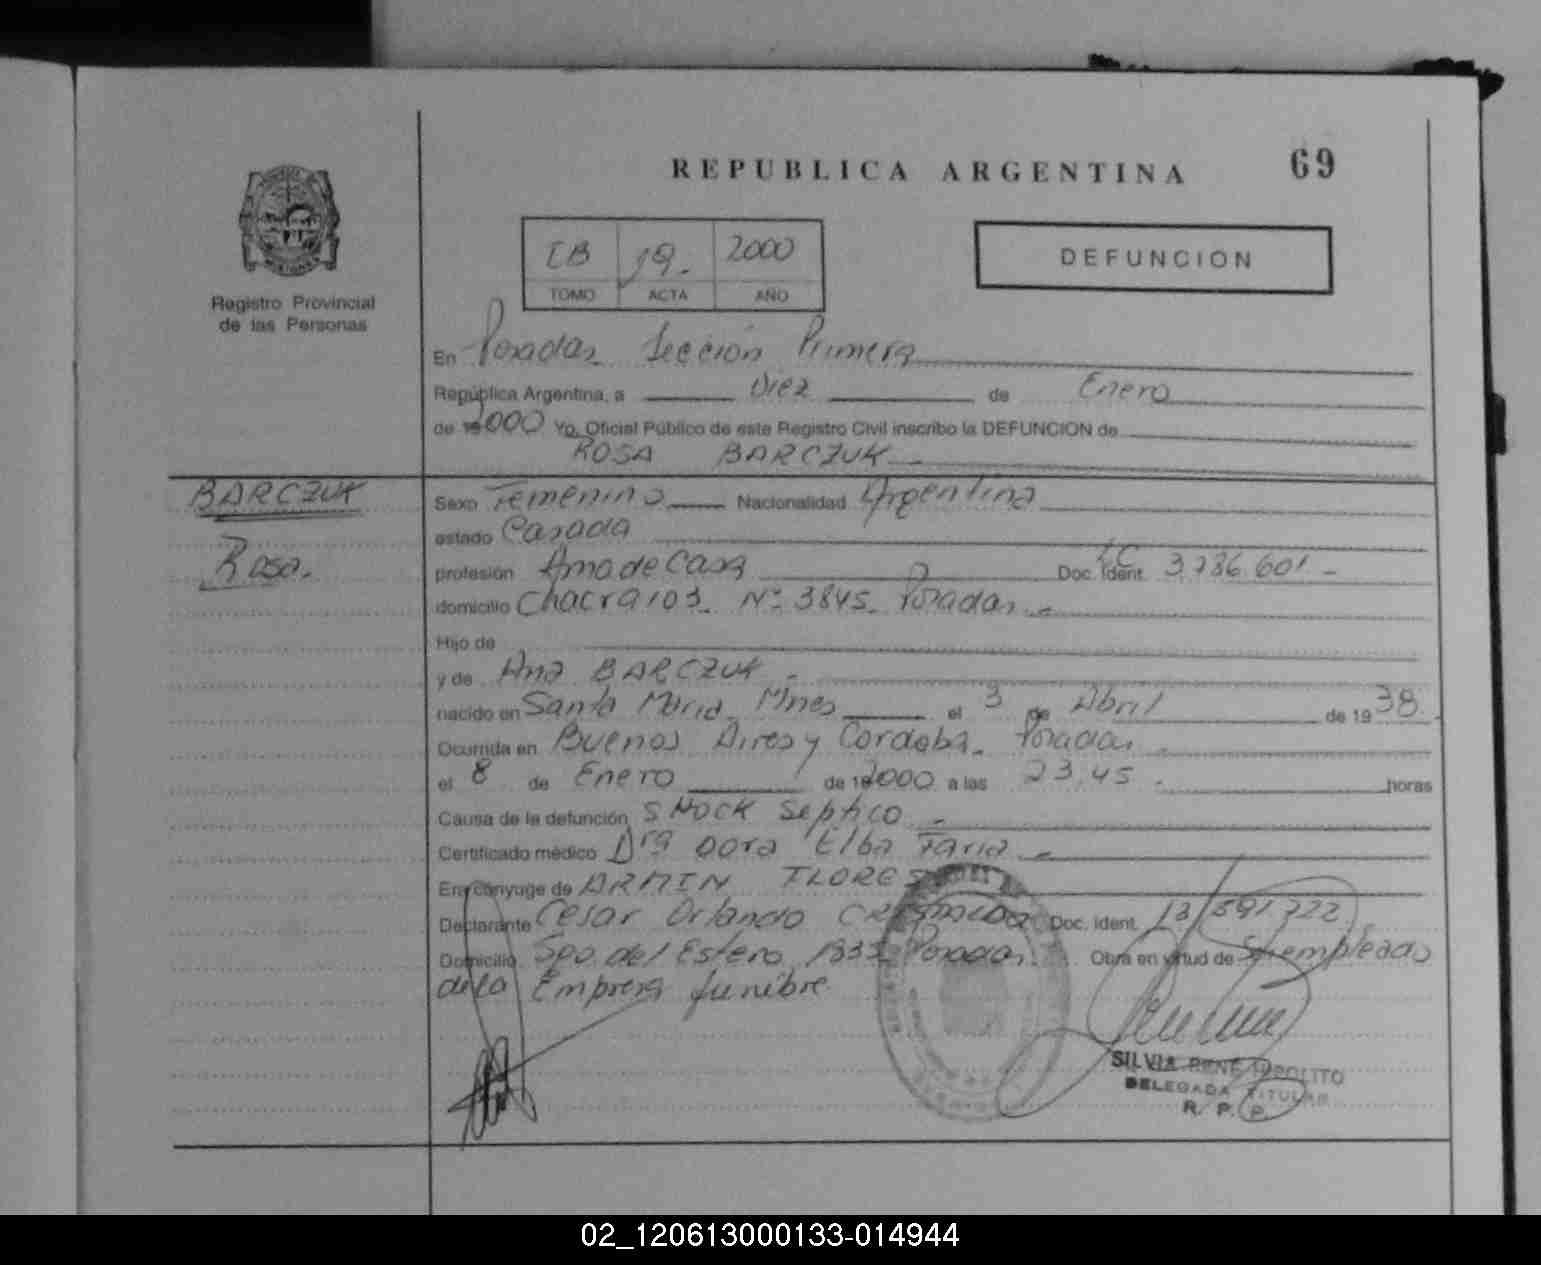 REPUBLICA ARGENTINA
69
Registro Provincial
de las Personas
IB 19. 2000
TOMO ACTA AÑO
DEFUNCION
En Posadas Sección Primera
República Argentina, a Diez de Enero
de 2000 Yo, Oficial Público de este Registro Civil inscribo la DEFUNCION de
ROSA BARCZUK
BARCZUK
Rosa.
Sexo Femenino Nacionalidad Argentina
estado Casada
profesión Ama de Casa Doc. Ident. LC 3.786.601
domicilio Chacra 103. Nº 3845. Posadas
Hijo de
y de Ana BARCZUK
nacido en Santa Maria Mnes el 3 de Abril de 1938.
Ocurrida en Buenos Aires y Cordoba. Posadas
el 8 de Enero de 2000 a las 23,45 horas
Causa de la defunción SHOCK Septico
Certificado médico Dra Dora Elba Faria
Era cónyuge de ARMIN FLORES
Declarante Cesar Orlando Doc. Ident. 13.591.722
Domicilio Sgo. del Estero 1833 Posadas Obra en virtud de Ser empleado
de la Empresa funebre
SILVIA RENE HIPOLITO
DELEGADA TITULAR
R. P. P.
02_120613000133-014944